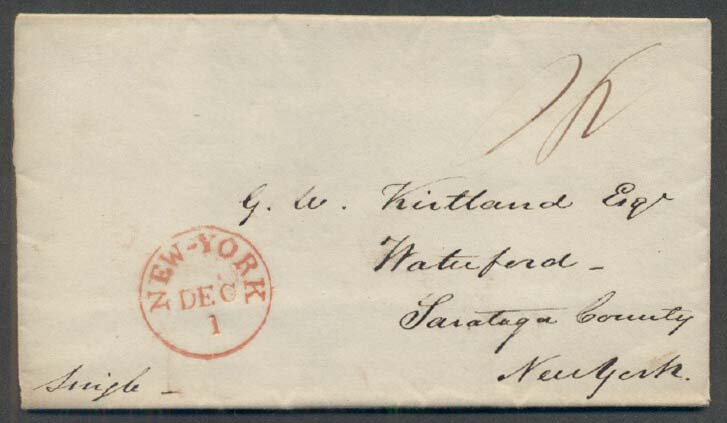 G. W. Kirtland Esqr
Waterford –
Saratoga County
New York.
NEW-YORK
DEC
1
Single –